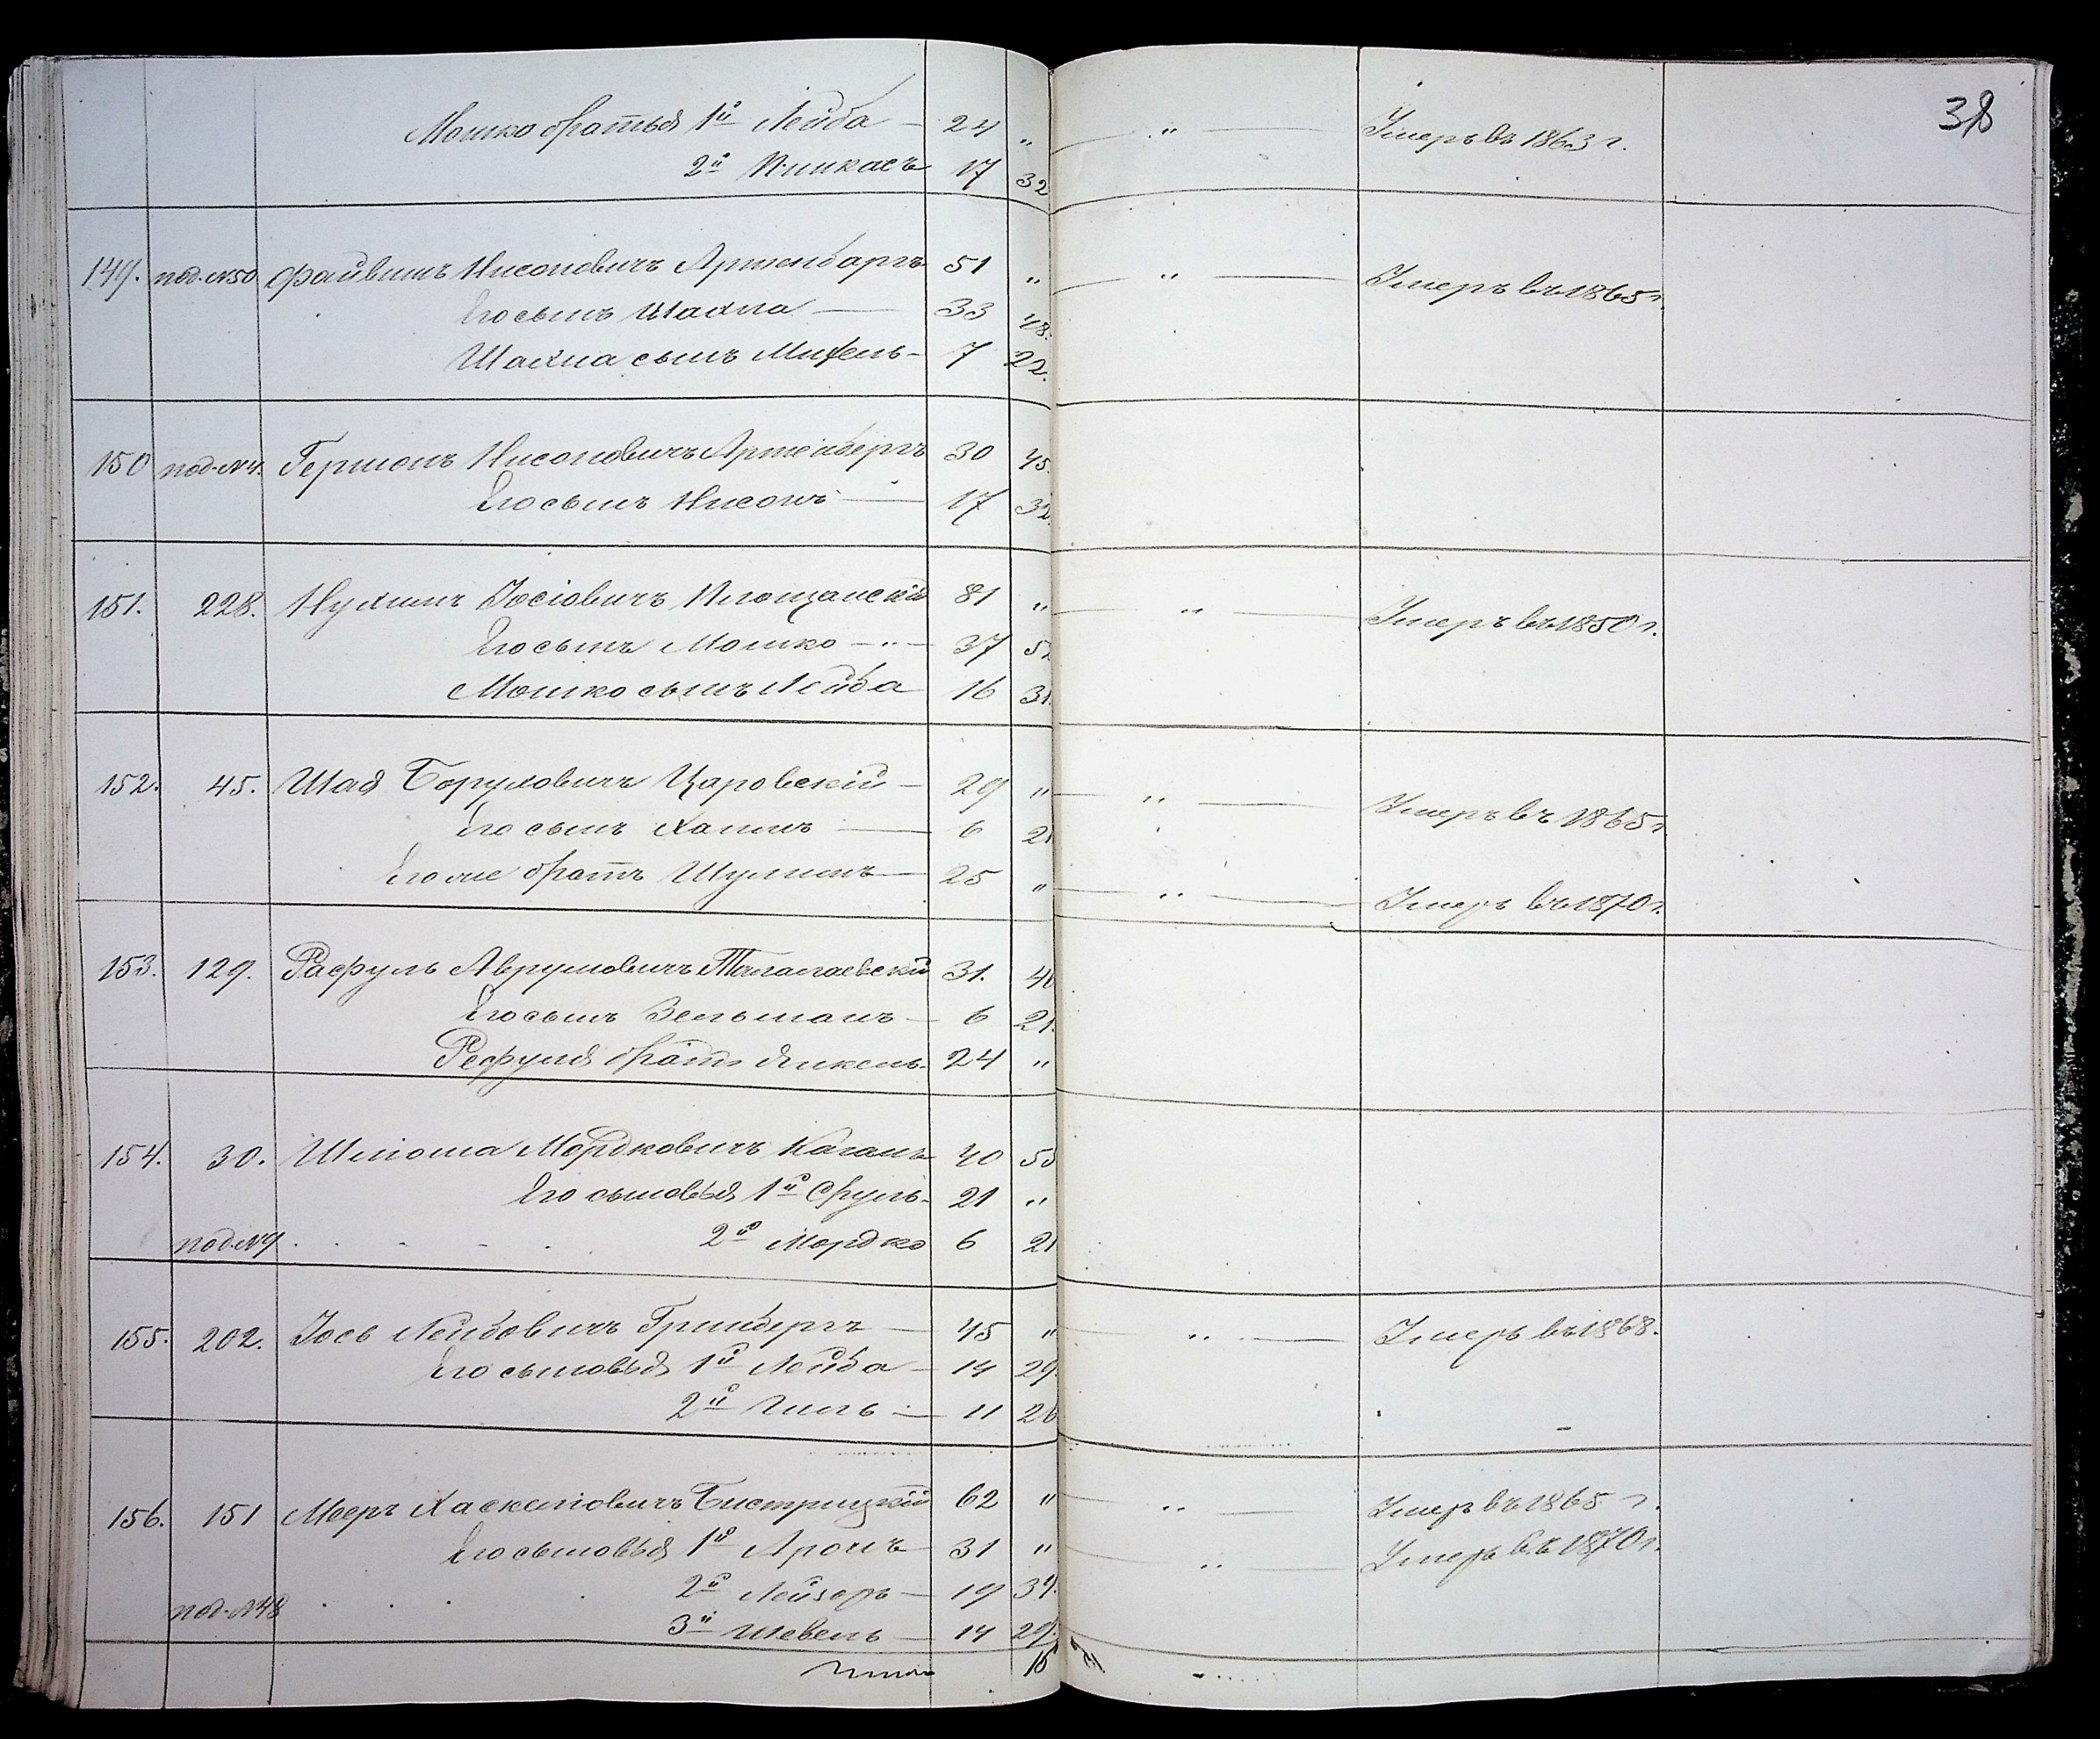 38
Мошко братья 1й Лейба — 24 „ — „ — Умеръ въ 1863 г.
2й Пинкасъ 17 32
149. под. №50 Файвишъ Нисоновичъ Артенбаргъ 51 „ — „ — Умеръ въ 1865 г.
Его сынъ Шахна — 33 48.
Шахна сынъ — 7 22.
150 под. №4. Гершонъ Нисоновичъ Артенбергъ 30 45.
Его сынъ Нисонъ — 17 32.
151. 228. Нухимъ Іосіовичъ Площанскій 81 „ — „ — Умеръ въ 1850 г.
Его сынъ Мошко — „ — 37 52
Мошко сынъ Лейба 16 31.
152. 45. Шая Борулович Царовскій — 29 „ — „ — Умеръ въ 1865 г.
Его сынъ Хаимъ — 6 21
Его же братъ Шулимъ — 25 „ — „ — Умеръ въ 1870 г.
153. 129. Расфуль Аврумовичъ 31. 46
Его сынъ Зельманъ — 6 21.
Рефуля братъ Янкель. 24 „
154. 30. Шліома Мордковичъ Каганъ 40 55
Его сыновья 1й Сруль. 21 „
под. №9 . . . . 2й Мордко 6 21
155. 202. Іось Лейбовичъ Гринбергъ — 45 „ „ — Умеръ въ 1868.
Его сыновья 1й Лейба — 14 29.
2й Гиль — 11 26
156. 151 Мееръ Хаскеліовичъ Бистрицкій 62 „ — „ — Умеръ въ 1865 г.
Его сыновья 1й Аронъ — 31 „ — „ — Умеръ въ 1870 г.
2й Лейзеръ — 19 34.
под. №48 . . . . 3й Шевель — 14 29.
Итого 16